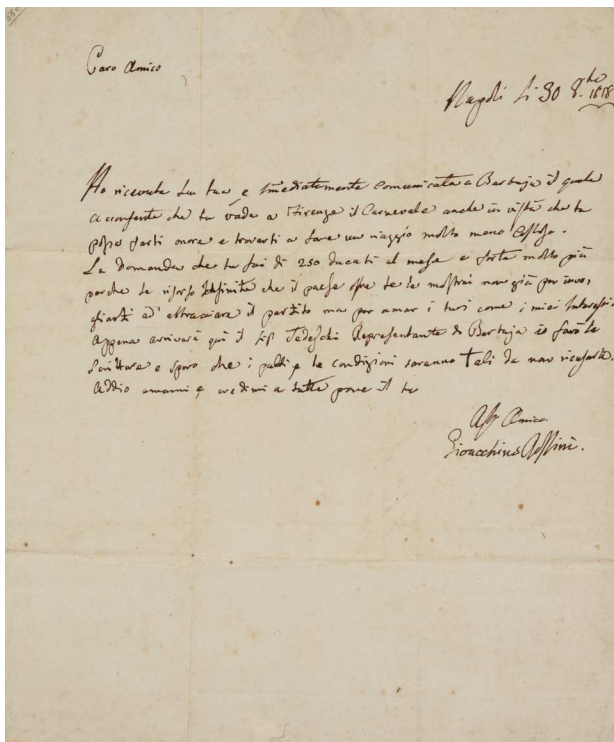 Caro Amico
Napoli li 30 8.bre 1818
Ho ricevuta la tua e immediatamente comunicata a Barbaja il quale
acconsente che tu vada a Firenze il Carnevale anche in vista che tu
possa farti onore e trovarti a fare un viaggio molto meno
La domanda che tu fai di 250 ducati al mese è forte molto più
perche le risorse infinite che il paese offre te le mostrai non già per invo-
gliarti ad' abbraciare il partito ma per amar i tuoi come i miei Interessi
Appena arriverà quì il Sig. Tadeschi Rapresentante di Barbaja io farò la
Scrittura e spero che i patti, e le condizioni saranno tali da non ricusarle.
Addio amami e credimi a tutte prove il tuo
Aff. Amico
Gioacchino Rossini.